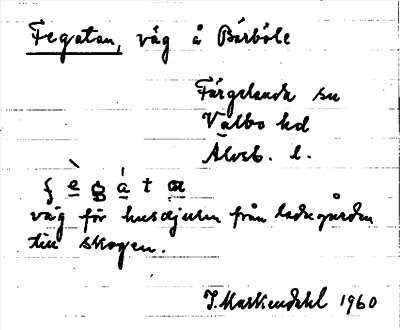 Fegatan, väg å Bärböle
Färgelanda sn
Valbo hd
Älvsb. l.
väg för husdjuren från ladugården
till skogen.
1960